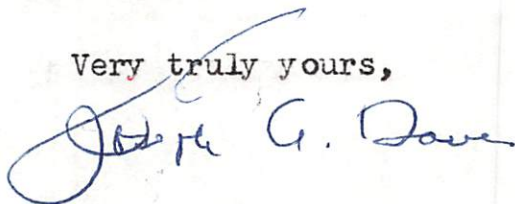 Very truly yours,
Joseph G.